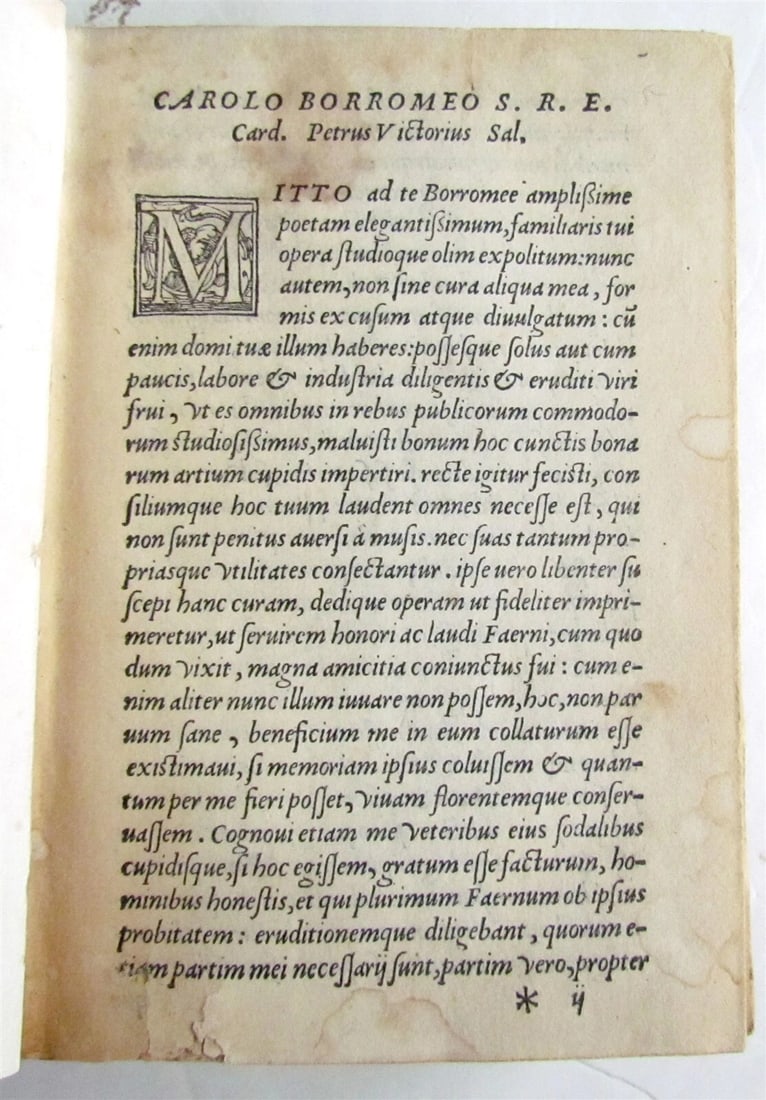 CAROLO BORROMEO S. R. E.
Card. Petrus Victorius Sal.
MITTO ad te Borromee ampliſsime
poetam elegantiſsimum, familiaris tui
opera ſtudioque olim expolitum: nunc
autem, non ſine cura aliqua mea, for
mis excuſum atque diuulgatum: cū
enim domi tuæ illum haberes: poſſeſque ſolus aut cum
paucis, labore & induſtria diligentis & eruditi viri
frui, vt es omnibus in rebus publicorum commodo-
rum ſtudioſiſsimus, maluiſti bonum hoc cunctis bona
rum artium cupidis impertiri. recte igitur feciſti, con
ſiliumque hoc tuum laudent omnes neceſſe eſt, qui
non ſunt penitus auerſi à muſis. nec ſuas tantum pro-
priasque vtilitates conſectantur. ipſe uero libenter ſu
ſcepi hanc curam, dedique operam ut fideliter impri-
meretur, ut ſeruirem honori ac laudi Faerni, cum quo
dum vixit, magna amicitia coniunctus fui: cum e-
nim aliter nunc illum iuuare non poſſem, hoc, non par
uum ſane, beneficium me in eum collaturum eſſe
exiſtimaui, ſi memoriam ipſius coluiſſem & quan-
tum per me fieri poſſet, viuam florentemque conſer-
uaſſem. Cognoui etiam me veteribus eius ſodalibus
cupidiſque, ſi hoc egiſſem, gratum eſſe facturum, ho-
minibus honeſtis, et qui plurimum Faernum ob ipſius
probitatem: eruditionemque diligebant, quorum e-
tiam partim mei neceſſarij ſunt, partim vero, propter
* ij